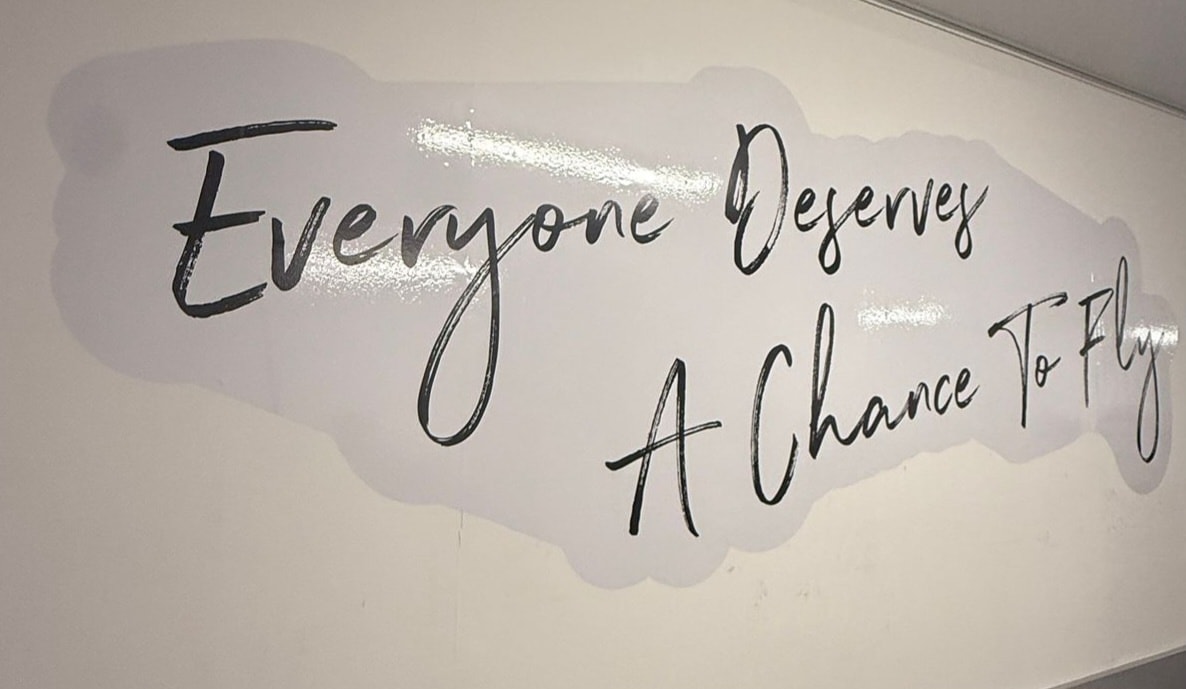 Everyone Deserves
A Chance To Fly